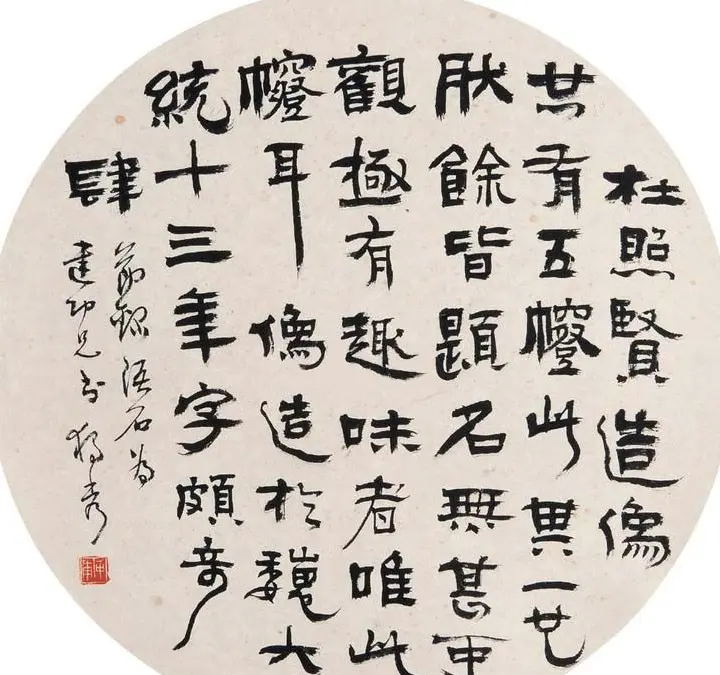 杜照賢造像
共有五此其一也
肰餘皆題名無甚可
觀極有趣味者唯此
耳像造於魏大
統十三年字頗奇
肆
節錄語石為
建功兄書獨秀